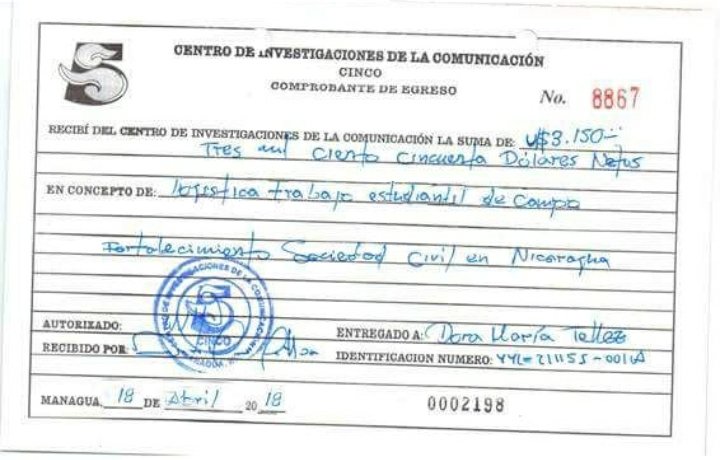 CENTRO DE INVESTIGACIONES DE LA COMUNICACIÓN
CINCO
COMPROBANTE DE EGRESO
No. 8867
RECIBÍ DEL CENTRO DE INVESTIGACIONES DE LA COMUNICACIÓN LA SUMA DE: U$3.150
Tres mil ciento cincuenta Dólares Netos
EN CONCEPTO DE: logistica trabajo estudiantil de Campo
Fortalecimiento Sociedad Civil en Nicaragua
CINCO
AUTORIZADO:
ENTREGADO A: Dora María Tellez
RECIBIDO POR:
IDENTIFICACION NUMERO:
MANAGUA, 18 DE Abril 2018
0002198